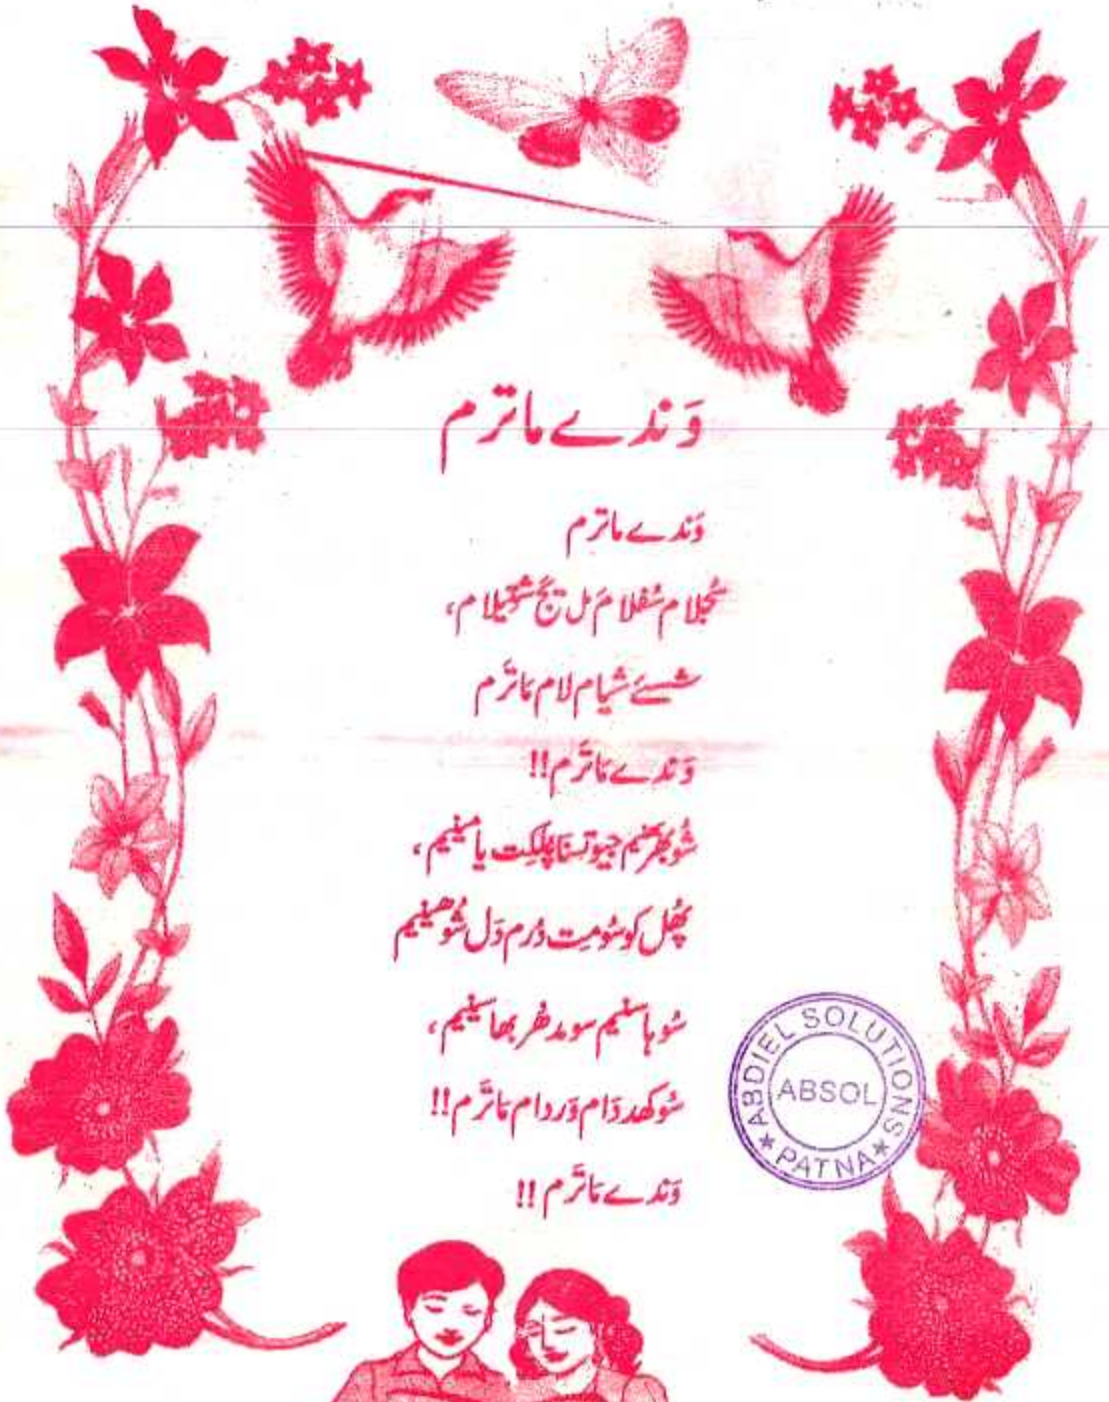 وَندے ماترم
وَندے ماترم
سُجلام سُفلام مَل یَج شِیتلام،
شسئے شیام لام مَاترَم
وَندے مَاترَم!!
شُوبھرَ جیوتسنَا پُلکِت یامینیم،
پھُل کوسُومِت دُرم دَل شُوھینیم
سُوہاسنیم سومدھُر بھاسینیم،
سُوکھد دَام وَردام مَاترَم!!
وَندے مَاترَم!!
ABDIEL SOLUTIONS
ABSOL
★ PATNA ★